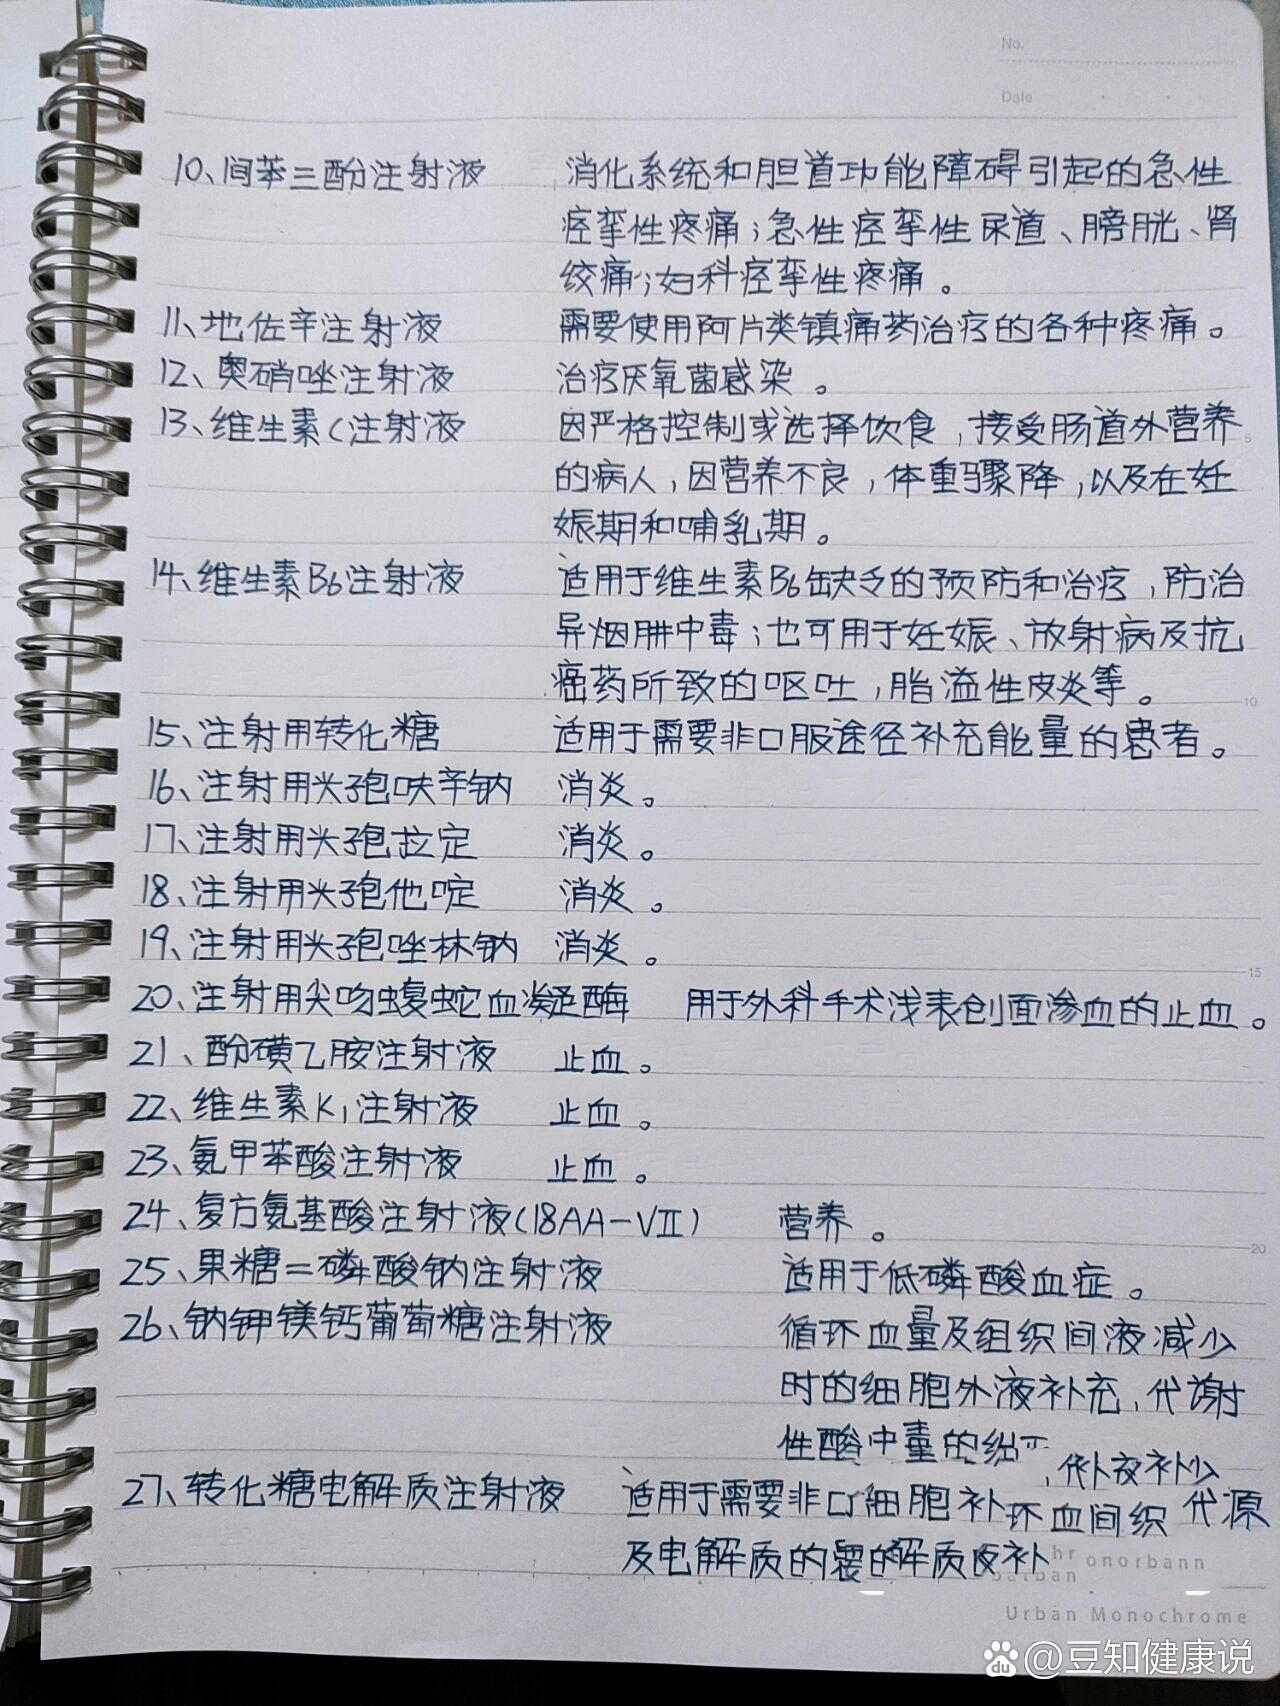 No.
Date
10、间苯三酚注射液 消化系统和胆道功能障碍引起的急性
痉挛性疼痛；急性痉挛性尿道、膀胱、肾
绞痛；妇科痉挛性疼痛。
11、地佐辛注射液 需要使用阿片类镇痛药治疗的各种疼痛。
12、奥硝唑注射液 治疗厌氧菌感染。
13、维生素C注射液 因严格控制或选择饮食，接受肠道外营养
5
的病人，因营养不良，体重骤降，以及在妊
娠期和哺乳期。
14、维生素B6注射液 适用于维生素B6缺乏的预防和治疗，防治
异烟肼中毒；也可用于妊娠、放射病及抗
癌药所致的呕吐，脂溢性皮炎等。
10
15、注射用转化糖 适用于需要非口服途径补充能量的患者。
16、注射用头孢呋辛钠 消炎。
17、注射用头孢拉定 消炎。
18、注射用头孢他啶 消炎。
19、注射用头孢唑林钠 消炎。
15
20、注射用尖吻蝮蛇血凝酶 用于外科手术浅表创面渗血的止血。
21、酚磺乙胺注射液 止血。
22、维生素K1注射液 止血。
23、氨甲苯酸注射液 止血。
24、复方氨基酸注射液(18AA-VII) 营养。
20
25、果糖二磷酸钠注射液 适用于低磷酸血症。
26、钠钾镁钙葡萄糖注射液 循环血量及组织间液减少
时的细胞外液补充，代谢
性酸中毒的
27、转化糖电解质注射液 适用于需要非口细胞补环血间织代源
及电解质的 解质 补
onorbann
Urban Monochrome
Bai du @豆知健康说